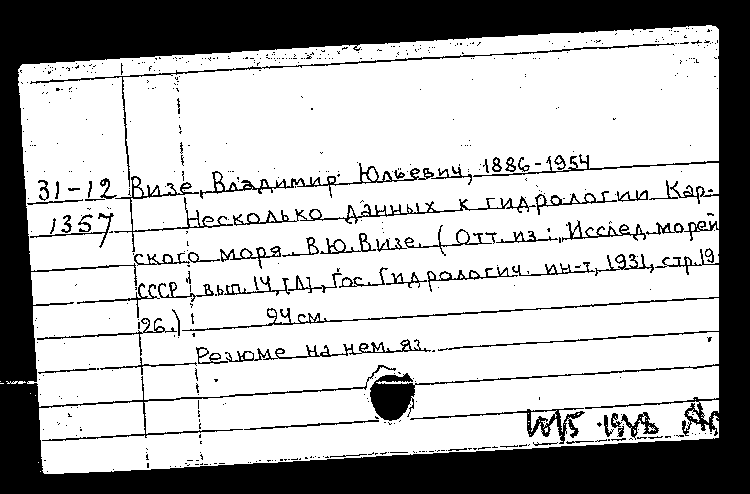 31-12 Визе, Владимир Юльевич, 1886-1954
1357 Несколько данных к гидрологии Кар-
ского моря. В.Ю. Визе. (Отт. из: „Исслед. морей
СССР", вып. 14, [Л], Гос. Гидрологич. ин-т, 1931, стр. 19-
26.) 24 см.
Резюме на нем. яз.